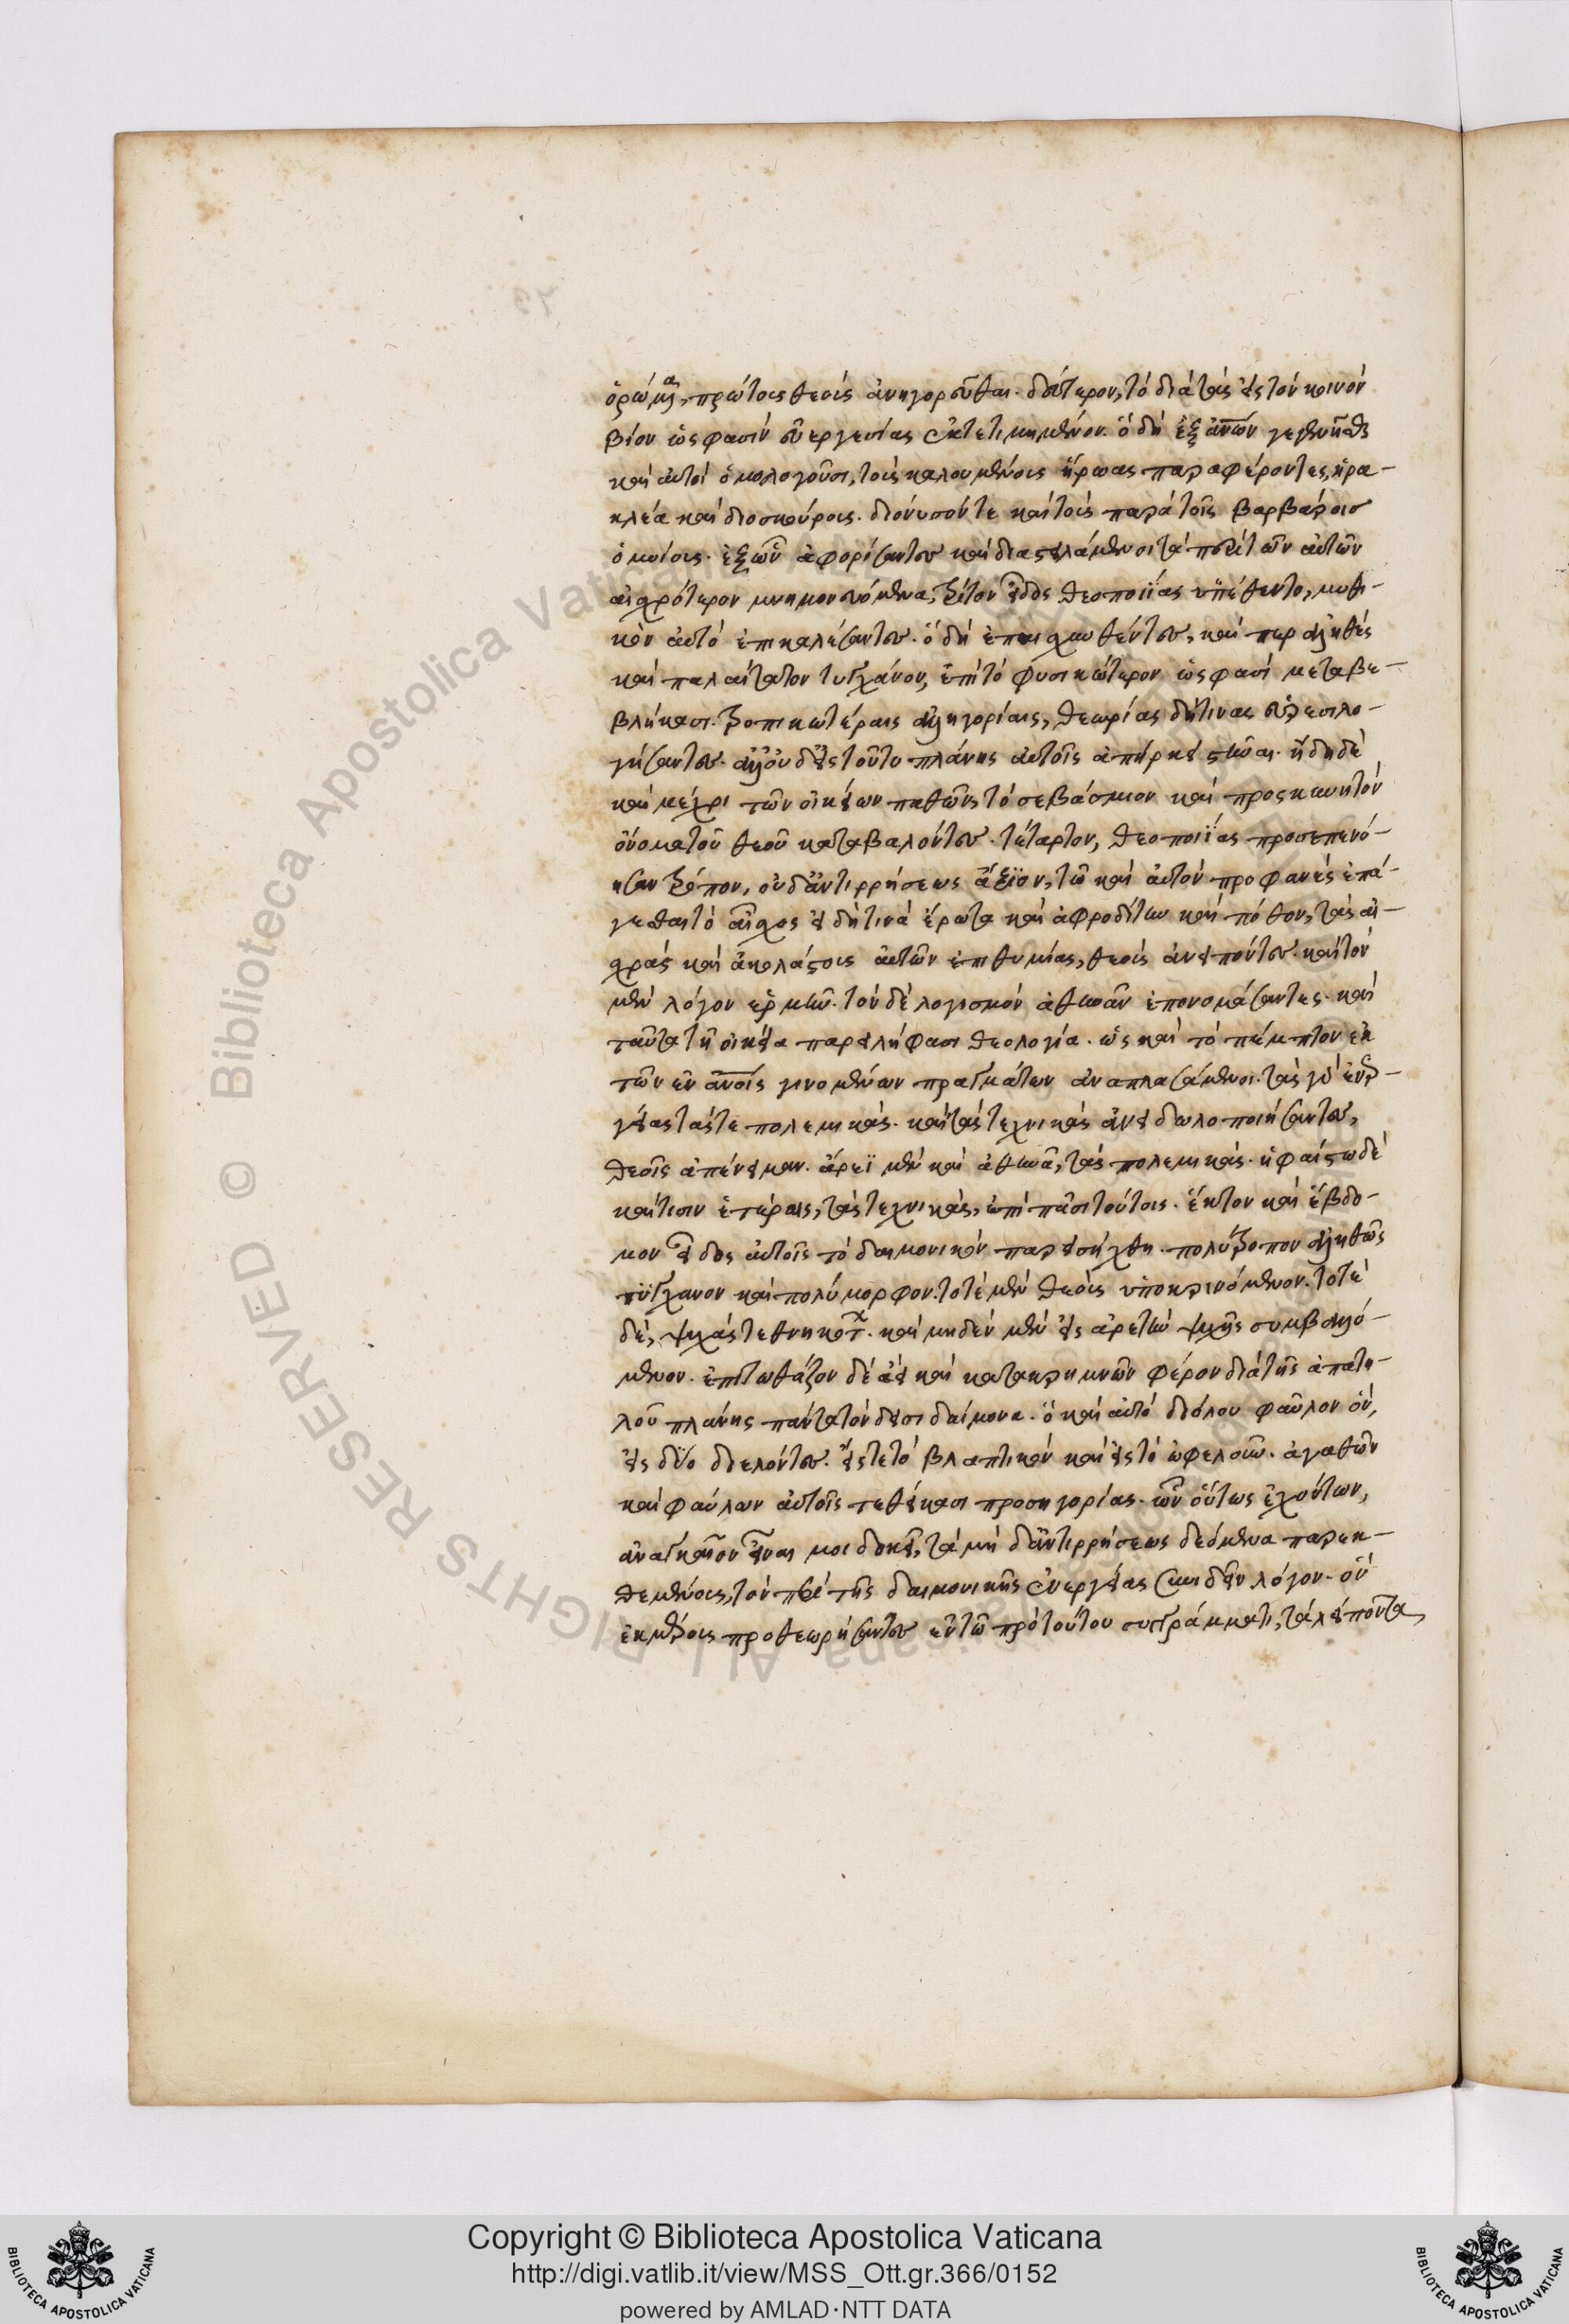 ὁρώμενα, πρώτοις θεοὺς ἀνηγορεῦσθαι. δεύτερον, τὸ διὰ τὰς εἰς τὸν κοινὸν
βίον ὥς φασιν εὐεργεσίας ἐκτετιμημένον. ὃ δὴ ἐξ ἀνων γεγενῆσθαι
καὶ αὐτοὶ ὁμολογοῦσι, τοὺς καλουμένους ἥρωας παραφέροντες, ἡρα-
κλέα καὶ διοσκούρους. διόνυσόν τε καὶ τοὺς παρὰ τοῖς βαρβάροισ
ὁμοίους. ἐξ ὧν ἀφορίσαντες καὶ διαστειλάμενοι τὰ περὶ τῶν αὐτῶν
αἰσχρότερον μνημονευόμενα, τρίτον εἶδος θεοποιίας ὑπέθεντο, μυθι-
κὸν αὐτὸ ἐπικαλέσαντες. ὃ δὴ ἐπαισχυνθέντες, καίπερ ἀληθὲς
καὶ παλαίτατον τυγχάνον, ἐπὶ τὸ φυσικώτερον ὥς φασι μεταβε-
βλήκασι. τροπικωτέραις ἀλληγορίαις, θεωρίας δή τινας εὑρεσιλο-
γήσαντες. ἀλλ' οὐδ' εἰς τοῦτο πλάνης αὐτοῖς ἀπήρκει στῆναι. ἤδη δὲ
καὶ μέχρι τῶν οἰκείων παθῶν, τὸ σεβάσμιον καὶ προσκυνητὸν
ὄνομα τοῦ θεοῦ καταβαλόντες. τέταρτον, θεοποιΐας προσεπενό-
ησαν τρόπον, οὐδ' ἀντιρρήσεως ἄξιον, τῶ καὶ αὐτὸν προφανὲς ἐπά-
γεσθαι τὸ αἶσχος εἰ δή τινα ἔρωτα καὶ ἀφροδίτην καὶ πόθον, τὰς αἰ-
σχρὰς καὶ ἀκολάστους αὐτῶν ἐπιθυμίας, θεοὺς ἀνειπόντες. καὶ τὸν
μὲν λόγον ἑρμῆν. τὸν δὲ λογισμὸν ἀθηνᾶν ἐπονομάσαντες. καὶ
ταῦτα τῇ οἰκεία παρειλήφασι θεολογία. ὡς καὶ τὸ πέμπτον ἐκ
τῶν ἐν ἀνοις γινομένων πραγμάτων ἀναπλασάμενοι. τὰς γὰρ ἐνερ-
γείας τάς τε πολεμικὰς. καὶ τὰς τεχνικὰς ἀνειδωλοποιήσαντες,
θεοῖς ἀπένειμαν. ἄρεϊ μὲν καὶ ἀθηνᾶ, τὰς πολεμικάς. ἡφαίστω δὲ
καί τισιν ἑτέροις, τὰς τεχνικάς, ἐπὶ πᾶσι τούτοις. ἕκτον καὶ ἕβδο-
μον εἶδος αὐτοῖς τὸ δαιμονικὸν παρεισήχθη. πολύτροπον ἀληθῶς
τυγχάνον καὶ πολύμορφον. τοτὲ μὲν θεοὺς ὑποκρινόμενον. τοτὲ
δὲ, ψυχὰς τεθνηκότων. καὶ μηδὲν μὲν εἰς ἀρετὴν ψυχῆς συμβαλλό-
μενον. ἐπιτωθάζον δὲ ἀεὶ καὶ κατὰ κρημνῶν φέρον διὰ τῆς ἀπατη-
λοῦ πλάνης πάντα τὸν δεισιδαίμονα. ὃ καὶ αὐτὸ διόλου φαῦλον ὂν,
εἰς δύο διελόντες. εἴς τε τὸ βλαπτικὸν καὶ εἰς τὸ ὠφελοῦν. ἀγαθῶν
καὶ φαύλων αὐτοῖς τεθείκασι προσηγορίας. ὧν οὕτως ἐχόντων,
ἀναγκαῖον εἶναί μοι δοκεῖ, τὰ μὴ δ' ἀντιρρήσεως δεόμενα παρεκ-
θεμένοις, τὸν περὶ τῆς δαιμονικῆς ἐνεργείας συνιδεῖν λόγον. ὃν
ἐκ μέρους προθεωρήσαντες ἐν τῶ πρὸ τούτου συγγράμματι, τὰ λείποντα,
Copyright © Biblioteca Apostolica Vaticana
http://digi.vatlib.it/view/MSS_Ott.gr.366/0152
powered by AMLAD·NTT DATA